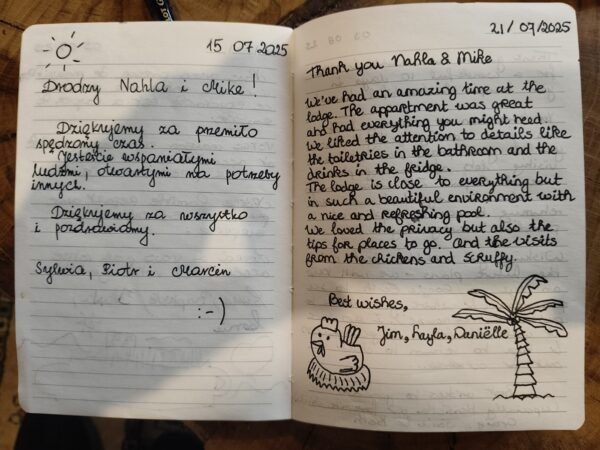 15 07 2025
Drodzy Nahla i Mike!
Dziękujemy za przemiło
spędzony czas.
Jesteście wspaniałymi
ludźmi, otwartymi na potrzeby
innych.
Dziękujemy za wszystko
i pozdrawiamy.
Sylwia, Piotr i Marcin
:-)
21/07/2025
Thank you Nahla & Mike
We've had an amazing time at the
lodge. The appartment was great
and had everything you might need.
We liked the attention to details like
the toiletries in the bathroom and the
drinks in the fridge.
The lodge is close to everything but
in such a beautiful environment with
a nice and refreshing pool.
We loved the privacy but also the
tips for places to go. And the visits
from the chickens and scruffy.
Best wishes,
Jim, Layla, Daniëlle